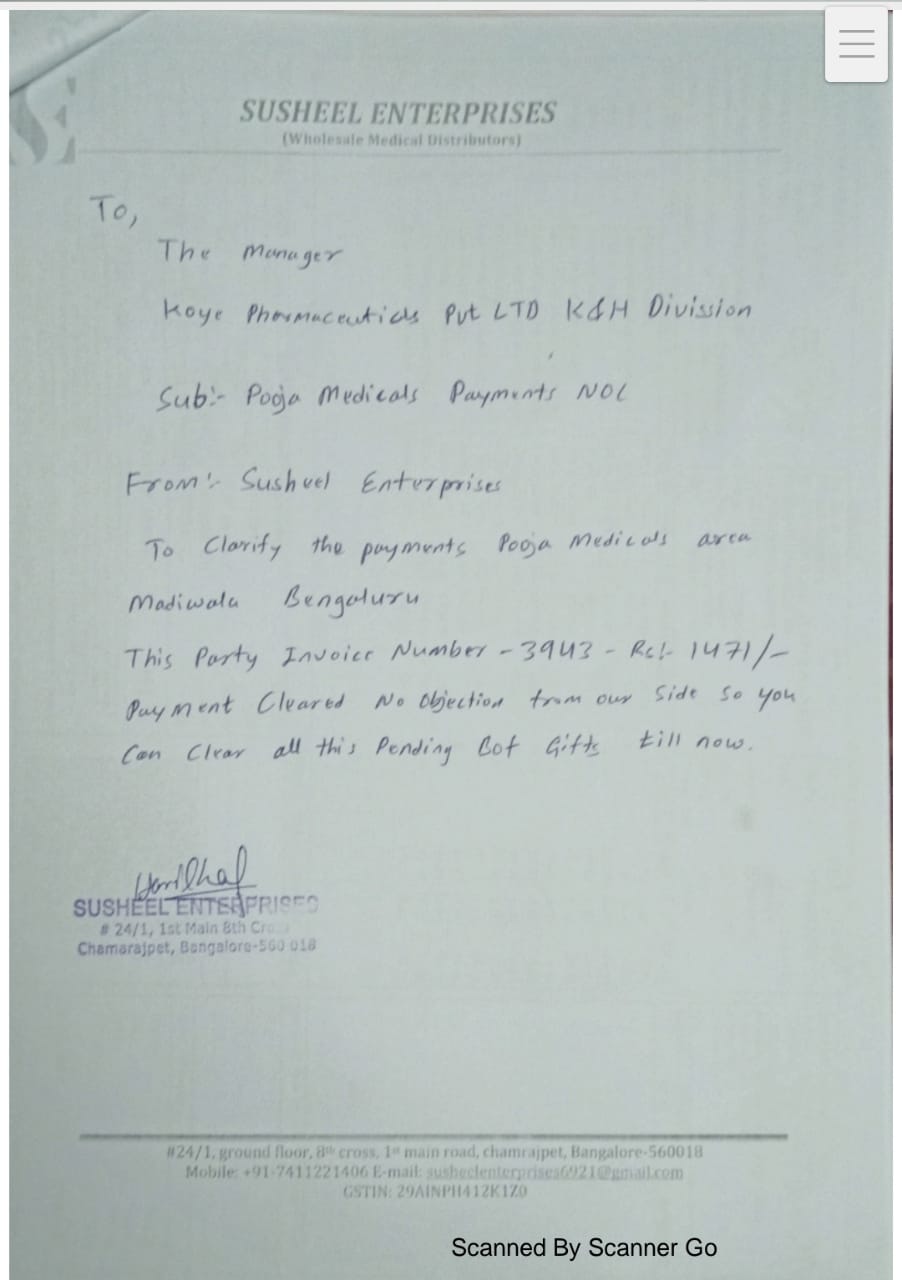 SE
SUSHEEL ENTERPRISES
(Wholesale Medical Distributors)
To,
The Manager
Koye Pharmaceuticals Pvt LTD K&H Divission
Sub:- Pooja Medicals Payments NOC
From:- Susheel Enterprises
To Clarify the payments Pooja Medicals area
Madiwala Bengaluru
This Party Invoice Number - 3943 - 1471/-
Payment Cleared No Objection from our Side So you
Can Clear all this Pending Gifts till now.
SUSHEEL ENTERPRISES
# 24/1, 1st Main 8th
Chamarajpet, Bangalore-560 018
#24/1, ground floor, 8th cross, 1st main road, chamrajpet, Bangalore-560018
Mobile: +91-7411221406 E-mail: susheelenterprises6921@gmail.com
GSTIN:
Scanned By Scanner Go